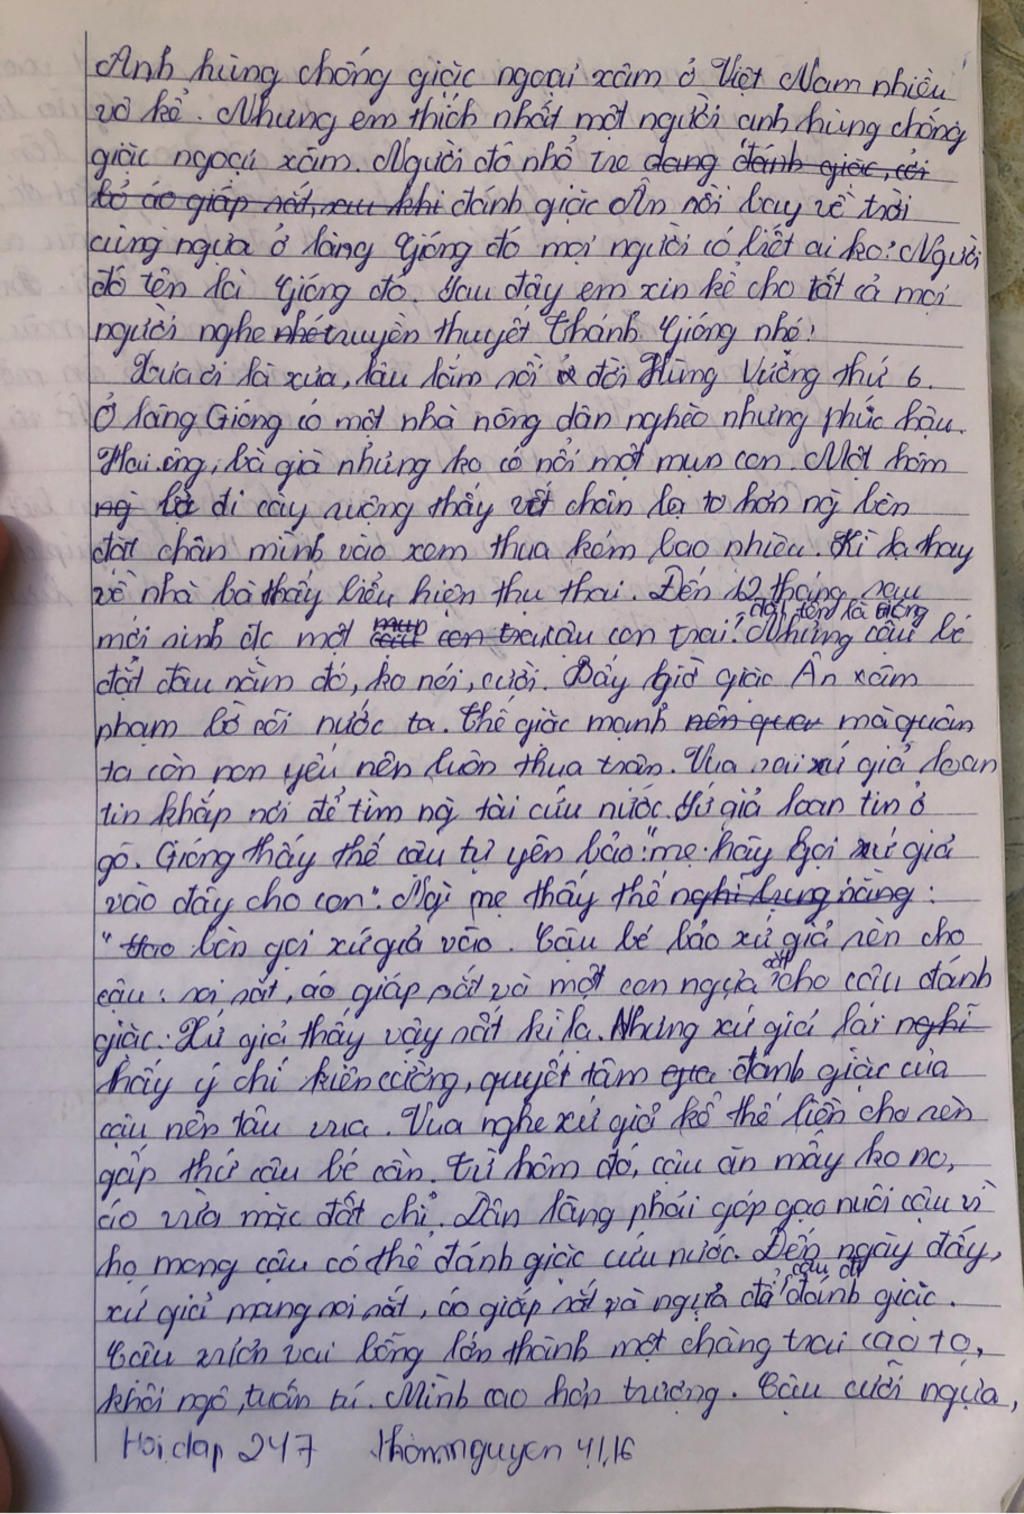 Anh hùng chống giặc ngoại xâm ở Việt Nam nhiều
vô kể. Nhưng em thích nhất một người anh hùng chống
giặc ngoại xâm. Người đó nhổ tre đang đánh giặc, cởi
bỏ áo giáp sắt, sau khi đánh giặc Ân rồi bay về trời
cùng ngựa ở làng Gióng đó mọi người có biết ai ko? Người
đó tên là Gióng đó. Sau đây em xin kể cho tất cả mọi
người nghe nhé truyền thuyết Thánh Gióng nhé!
Xưa ơi là xưa, lâu lắm rồi ở đời Hùng Vương thứ 6.
Ở làng Gióng có một nhà nông dân nghèo nhưng phúc hậu.
Hai ông, bà già nhưng ko có nổi một mụn con. Một hôm
ng̀ bà đi cày ruộng thấy vết chân lạ to hơn ng̀ bèn
đặt chân mình vào xem thua kém bao nhiêu. Kì lạ thay
về nhà bà thấy biểu hiện thụ thai. Đến 12 tháng sau
đặt tên là Gióng
mới sinh đc một mụn con trai cậu con trai. Nhưng cậu bé
đặt đâu nằm đó, ko nói, cười. Bấy giờ giặc Ân xâm
phạm bờ cõi nước ta. Thế giặc mạnh nên quân mà quân
ta còn non yếu nên luôn thua trận. Vua sai xứ giả loan
tin khắp nơi để tìm ng̀ tài cứu nước. Sứ giả loan tin ở
gõ. Gióng thấy thế cậu tự yên bảo: "mẹ hãy gọi xứ giả
vào đây cho con". Ng̀ mẹ thấy thế nghĩ bụng rằng:
" bèn gọi xứ giả vào. Cậu bé bảo xứ giả rèn cho
cậu: roi sắt, áo giáp sắt và một con ngựa sắt cho cậu đánh
giặc. Xứ giả thấy vậy rất kì lạ. Nhưng xứ giả lại nghĩ
thấy ý chí kiên cường, quyết tâm đánh giặc của
cậu nên tâu vua. Vua nghe xứ giả kể thế liền cho rèn
gấp thứ cậu bé cần. Từ hôm đó, cậu ăn mấy ko no,
áo vừa mặc đứt chỉ. Dân làng phải góp gạo nuôi cậu vì
họ mong cậu có thể đánh giặc cứu nước. Đến ngày đấy,
xứ giả mang roi sắt, áo giáp sắt và ngựa để cậu đi đánh giặc.
Cậu vươn vai bỗng lớn thành một chàng trai cao to,
khôi ngô, tuấn tú. Mình cao hơn trượng. Cậu cưỡi ngựa,
Hoidap 247 Thom.nguyen 4!,16